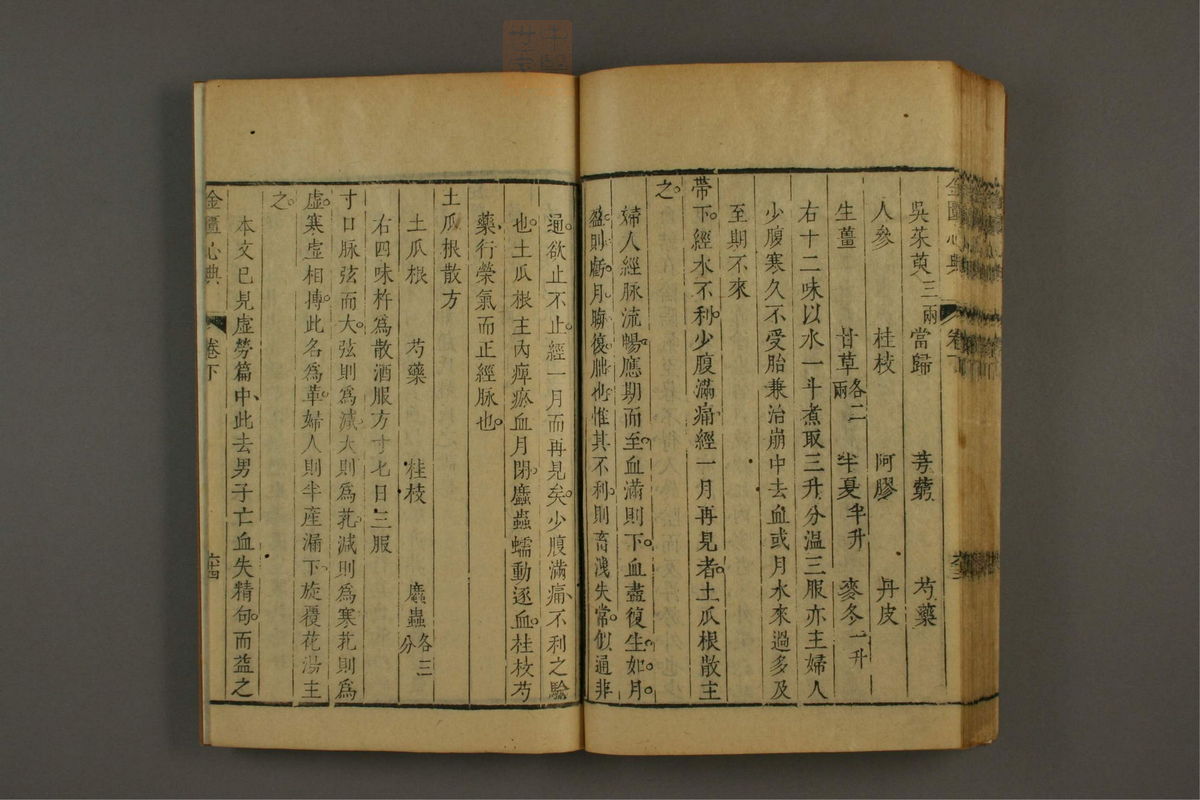 金匱心典 卷下
吳茱萸三兩 當歸 芎藭 芍藥
人參 桂枝 阿膠 丹皮
生薑 甘草各二兩 半夏半升 麥冬一升
右十二味以水一斗煮取三升分溫三服亦主婦人
少腹寒久不受胎兼治崩中去血或月水來過多及
至期不來
帶下。經水不利。少腹滿痛。經一月再見者。土瓜根散主
之。
婦人經脉流暢。應期而至。血滿則下。血盡復生。如月
盈則虧。月晦復朏也。惟其不利。則畜洩失常。似通非
通。欲止不止。經一月而再見矣。少腹滿痛、不利之驗
也。土瓜根主內痺瘀血月閉。䗪蟲蠕動逐血。桂枝芍
藥、行榮氣而正經脉也。
土瓜根散方
土瓜根 芍藥 桂枝 䗪蟲各三分
右四味杵爲散酒服方寸匕日三服
寸口脉弦而大。弦則爲減。大則爲芤。減則爲寒。芤則爲
虛。寒虛相摶。此名爲革。婦人則半產漏下。旋覆花湯主
之。
本文已見虛勞篇中、此去男子亡血失精句。而益之
金匱心典 卷下 六四